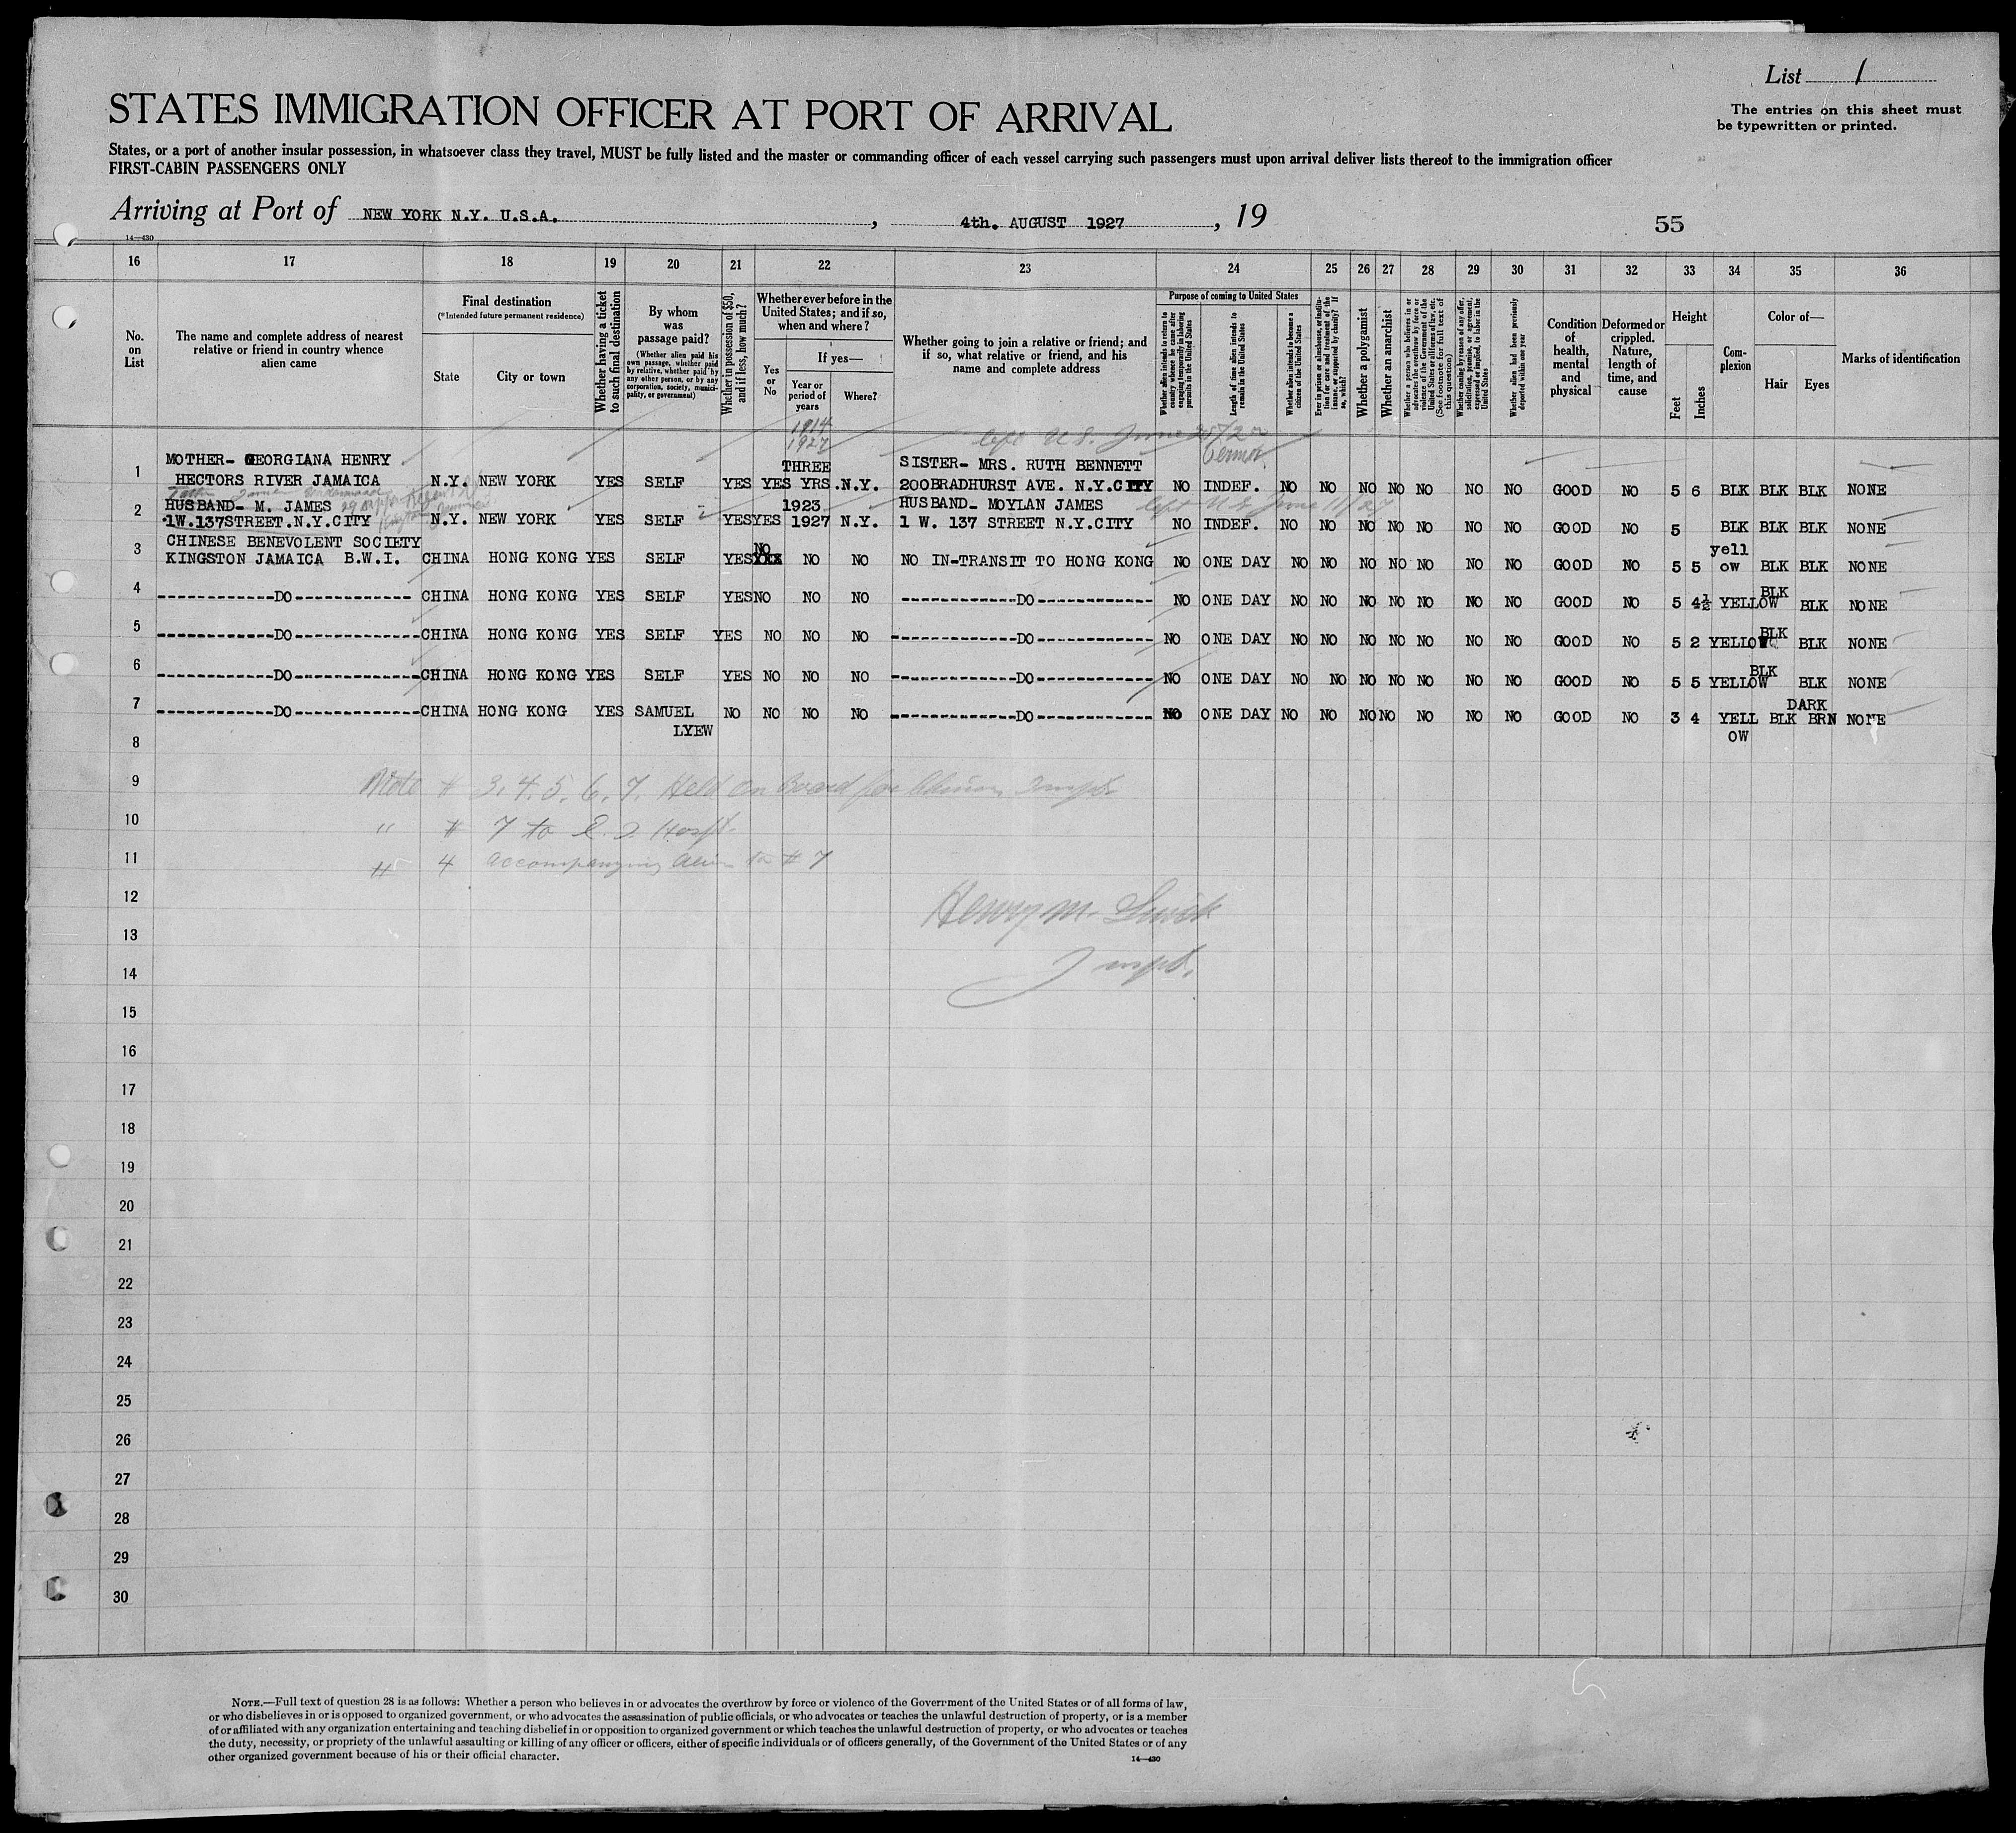 List 1
The entries on this sheet must
be typewritten or printed.
STATES IMMIGRATION OFFICER AT PORT OF ARRIVAL
States, or a port of another insular possession, in whatsoever class they travel, MUST be fully listed and the master or commanding officer of each vessel carrying such passengers must upon arrival deliver lists thereof to the immigration officer
FIRST-CABIN PASSENGERS ONLY
Arriving at Port of NEW YORK N.Y. U.S.A. , 4th. AUGUST 1927 , 19
55
14—430
16 17 18 19 20 21 22 23 24 25 26 27 28 29 30 31 32 33 34 35 36
No. on List
The name and complete address of nearest
relative or friend in country whence
alien came
Final destination
(*Intended future permanent residence)
State
City or town
Whether having a ticket
to such final destination
By whom
was
passage paid?
(Whether alien paid his
own passage, whether paid
by relative, whether paid by
any other person, or by any
corporation, society, munici-
pality, or government)
Whether in possession of $50,
and if less, how much?
Whether ever before in the
United States; and if so,
when and where?
Yes
or
No
If yes—
Year or
period of
years
Where?
Whether going to join a relative or friend; and
if so, what relative or friend, and his
name and complete address
Purpose of coming to United States
Whether alien intends to return to
country whence he came after
engaging temporarily in laboring
pursuits in the United States
Length of time alien intends to
remain in the United States
Whether alien intends to become a
citizen of the United States
Ever in prison or almshouse, or institu-
tion for care and treatment of the
insane, or supported by charity? If
so, which?
Whether a polygamist
Whether an anarchist
Whether a person who believes in or
advocates the overthrow by force or
violence of the Government of the
United States or all forms of law, etc.
(See footnote for full text of
this question)
Whether coming by reason of any offer,
solicitation, promise, or agreement,
expressed or implied, to labor in the
United States
Whether alien had been previously
deported within one year
Condition
of
health,
mental
and
physical
Deformed or
crippled.
Nature,
length of
time, and
cause
Height
Feet
Inches
Com-
plexion
Color of—
Hair
Eyes
Marks of identification
1914
1927
left U.S. June
1 MOTHER- GEORGIANA HENRY THREE SISTER- MRS. RUTH BENNETT
HECTORS RIVER JAMAICA N.Y. NEW YORK YES SELF YES YES YRS. N.Y. 200 BRADHURST AVE. N.Y.CITY NO INDEF. NO NO NO NO NO NO NO GOOD NO 5 6 BLK BLK BLK NONE
2 HUSBAND- M. JAMES 1923 HUSBAND- MOYLAN JAMES left U.S. June 11/27
1W.137STREET.N.Y.CITY N.Y. NEW YORK YES SELF YES YES 1927 N.Y. 1 W. 137 STREET N.Y.CITY NO INDEF. NO NO NO NO NO NO NO GOOD NO 5 BLK BLK BLK NONE
3 CHINESE BENEVOLENT SOCIETY NO yell
KINGSTON JAMAICA B.W.I. CHINA HONG KONG YES SELF YES NO NO NO IN-TRANSIT TO HONG KONG NO ONE DAY NO NO NO NO NO NO NO GOOD NO 5 5 ow BLK BLK NONE
4 DO CHINA HONG KONG YES SELF YES NO NO NO DO NO ONE DAY NO NO NO NO NO NO NO GOOD NO 5 4½ YELLOW BLK BLK NONE
5 DO CHINA HONG KONG YES SELF YES NO NO NO DO NO ONE DAY NO NO NO NO NO NO NO GOOD NO 5 2 YELLOW BLK BLK NONE
6 DO CHINA HONG KONG YES SELF YES NO NO NO DO NO ONE DAY NO NO NO NO NO NO NO GOOD NO 5 5 YELLOW BLK BLK NONE
7 DO CHINA HONG KONG YES SAMUEL LYEW NO NO NO NO DO NO ONE DAY NO NO NO NO NO NO NO GOOD NO 3 4 YELLOW BLK DARK BRN NONE
8
9 Note # 3, 4, 5, 6, 7, Held on Board for Chinese Inspt.
10 " # 7 to E. I. Hospt.
11 # 4 accompanying alien to # 7
12 Henry M.
13
14 Inspt.
15
16
17
18
19
20
21
22
23
24
25
26
27
28
29
30
NOTE.—Full text of question 28 is as follows: Whether a person who believes in or advocates the overthrow by force or violence of the Government of the United States or of all forms of law,
or who disbelieves in or is opposed to organized government, or who advocates the assassination of public officials, or who advocates or teaches the unlawful destruction of property, or is a member
of or affiliated with any organization entertaining and teaching disbelief in or opposition to organized government or which teaches the unlawful destruction of property, or who advocates or teaches
the duty, necessity, or propriety of the unlawful assaulting or killing of any officer or officers, either of specific individuals or of officers generally, of the Government of the United States or of any
other organized government because of his or their official character.
14—430